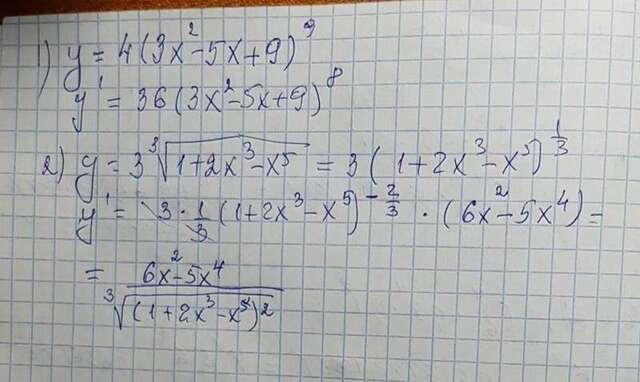 1) y = 4(3x²-5x+9)⁹
y' = 36(3x²-5x+9)⁸
2) y = 3∛(1+2x³-x⁵) = 3(1+2x³-x⁵)^(1/3)
y' = 3·1/3(1+2x³-x⁵)^(-2/3) · (6x²-5x⁴) =
= (6x²-5x⁴)/∛((1+2x³-x⁵)²)